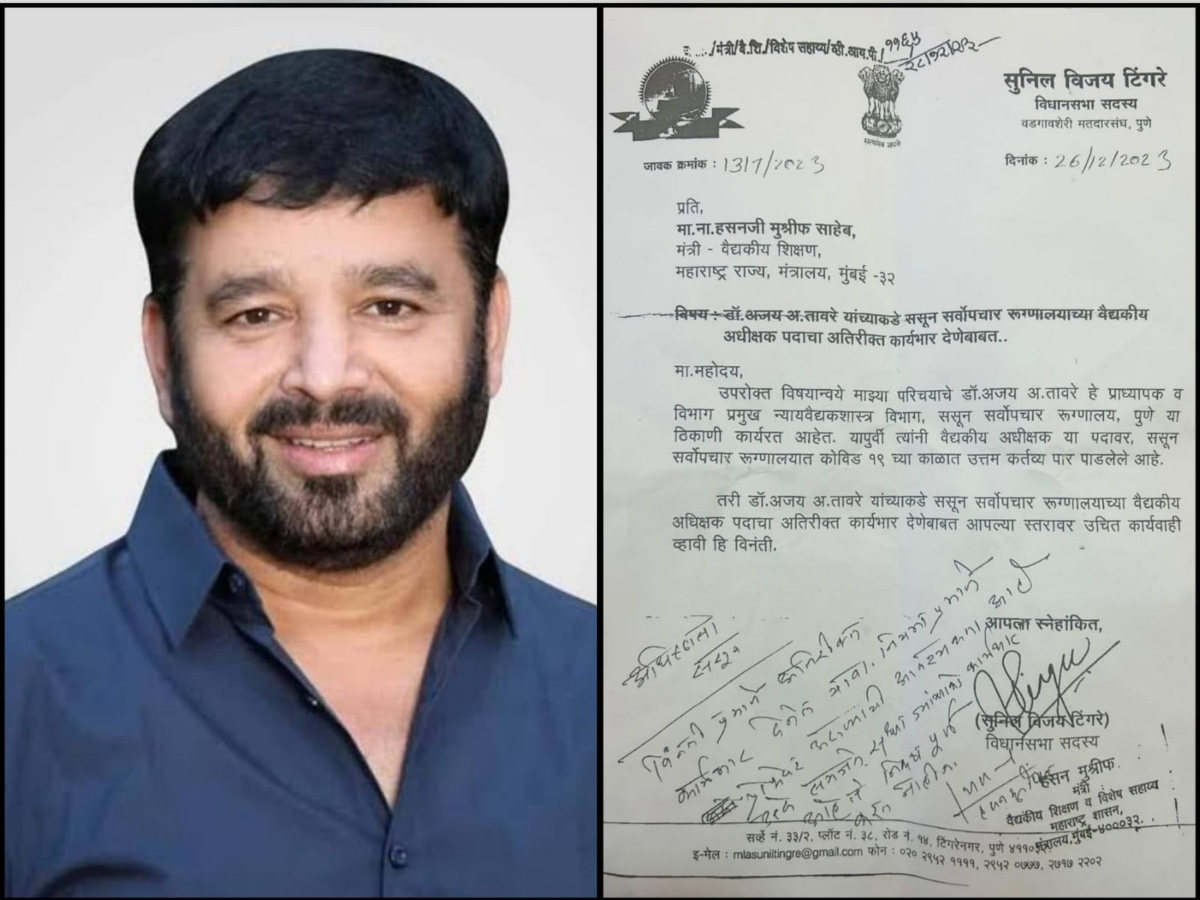 /मंत्री/वै.शि./विशेष सहाय्य/व्ही.आय.पी./ ११६५
सत्यमेव जयते
सुनिल विजय टिंगरे
विधानसभा सदस्य
वडगावशेरी मतदारसंघ, पुणे
जावक क्रमांक : 1317/2023
दिनांक : 26/12/2023
प्रति,
मा.ना.हसनजी मुश्रीफ साहेब,
मंत्री - वैद्यकीय शिक्षण,
महाराष्ट्र राज्य, मंत्रालय, मुंबई -३२
विषय : डॉ.अजय अ.तावरे यांच्याकडे ससून सर्वोपचार रूग्णालयाच्या वैद्यकीय
अधीक्षक पदाचा अतिरीक्त कार्यभार देणेबाबत..
मा.महोदय,
उपरोक्त विषयान्वये माझ्या परिचयाचे डॉ.अजय अ.तावरे हे प्राध्यापक व
विभाग प्रमुख न्यायवैद्यकशास्त्र विभाग, ससून सर्वोपचार रूग्णालय, पुणे या
ठिकाणी कार्यरत आहेत. यापुर्वी त्यांनी वैद्यकीय अधीक्षक या पदावर, ससून
सर्वोपचार रूग्णालयात कोविड १९ च्या काळात उत्तम कर्तव्य पार पाडलेले आहे.
तरी डॉ.अजय अ.तावरे यांच्याकडे ससून सर्वोपचार रूग्णालयाच्या वैद्यकीय
अधिक्षक पदाचा अतिरीक्त कार्यभार देणेबाबत आपल्या स्तरावर उचित कार्यवाही
व्हावी हि विनंती.
आपला स्नेहांकित,
(सुनिल विजय टिंगरे)
विधानसभा सदस्य
अधिष्ठाता
ससून
विनंती प्रमाणे अतिरीक्त
कार्यभार देणेत यावा. नियमा प्रमाणे
हसन मुश्रीफ
मंत्री
वैद्यकीय शिक्षण व विशेष सहाय्य
महाराष्ट्र शासन,
मंत्रालय,मुंबई-४०००३२.
सर्व्हे नं. ३३/२, प्लॉट नं. ३८, रोड नं. १४, टिंगरेनगर, पुणे
इ-मेल : mlasuniltingre@gmail.com फोन : ०२० २९५२ ११११, २९५२ ०७७७, २७१७ २२०२